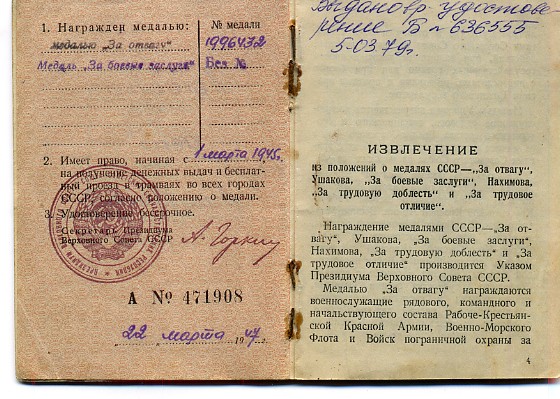 1. Награжден медалью:
№ медали
медалью „За отвагу“
1996432
Медаль „За боевые заслуги“
Без №
2. Имеет право, начиная с
1 марта 1945г.
на получение денежных выдач и бесплат-
ный проезд в трамваях во всех городах
СССР, согласно положению о медали.
3. Удостоверение бессрочное.
Секретарь Президиума
Верховного Совета СССР
А. Горкин
А № 471908
22 марта 1947
Выдано вр. удостове-
рение Б № 636555
5-03.79г.
ИЗВЛЕЧЕНИЕ
из положений о медалях СССР—„За отвагу“,
Ушакова, „За боевые заслуги“, Нахимова,
„За трудовую доблесть“ и „За трудовое
отличие“.
Награждение медалями СССР—„За от-
вагу“, Ушакова, „За боевые заслуги“,
Нахимова, „За трудовую доблесть“ и „За
трудовое отличие“ производится Указом
Президиума Верховного Совета СССР.
Медалью „За отвагу“ награждаются
военнослужащие рядового, командного и
начальствующего состава Рабоче-Крестьян-
ской Красной Армии, Военно-Морского
Флота и Войск пограничной охраны за
4